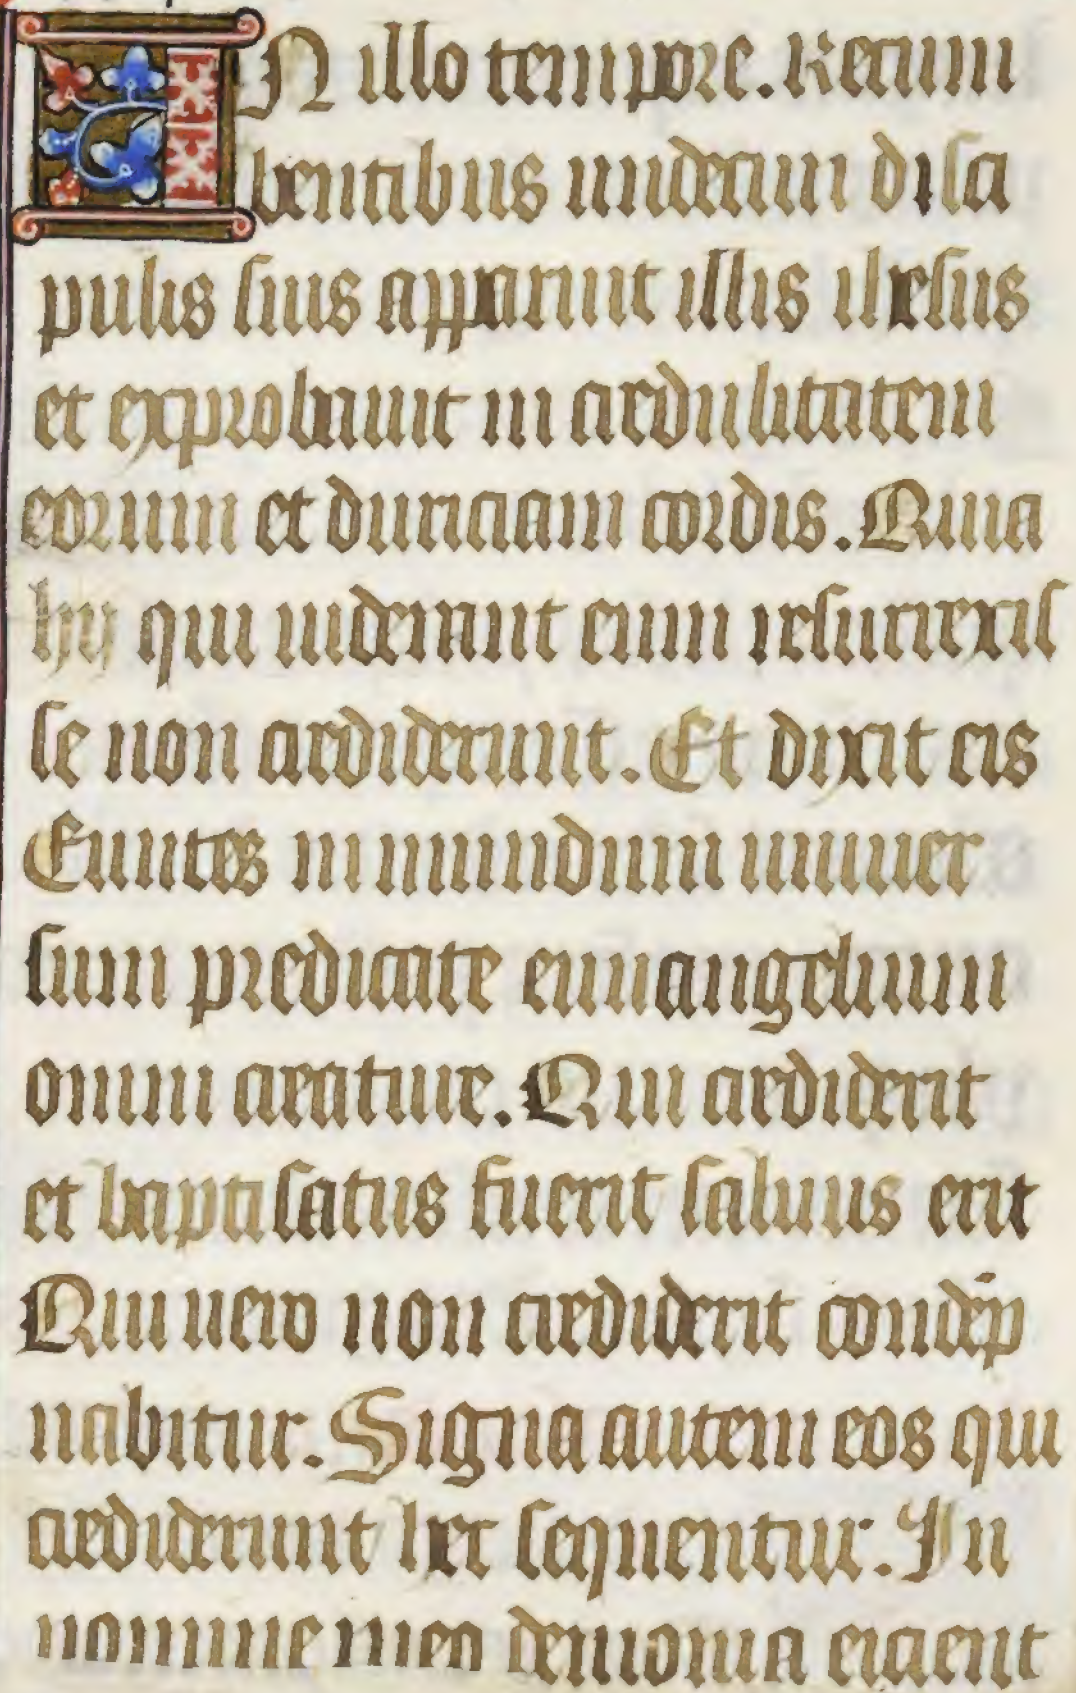 IN illo tempore. Recum
bentibus undecim disci
pulis suis apparuit illis ihesus
et exprobauit in credulitatem
eorum et duriciam cordis. Quia
hij qui uiderant eum resurrexis
se non crediderunt. Et dixit eis
Euntes in mundum uniuer
sum predicate euuangelium
omni creature. Qui crediderit
et baptisatus fuerit saluus erit
Qui uero non crediderit condēp
nabitur. Signa autem eos qui
crediderunt hec sequentur. In
nomine meo demonia eicient